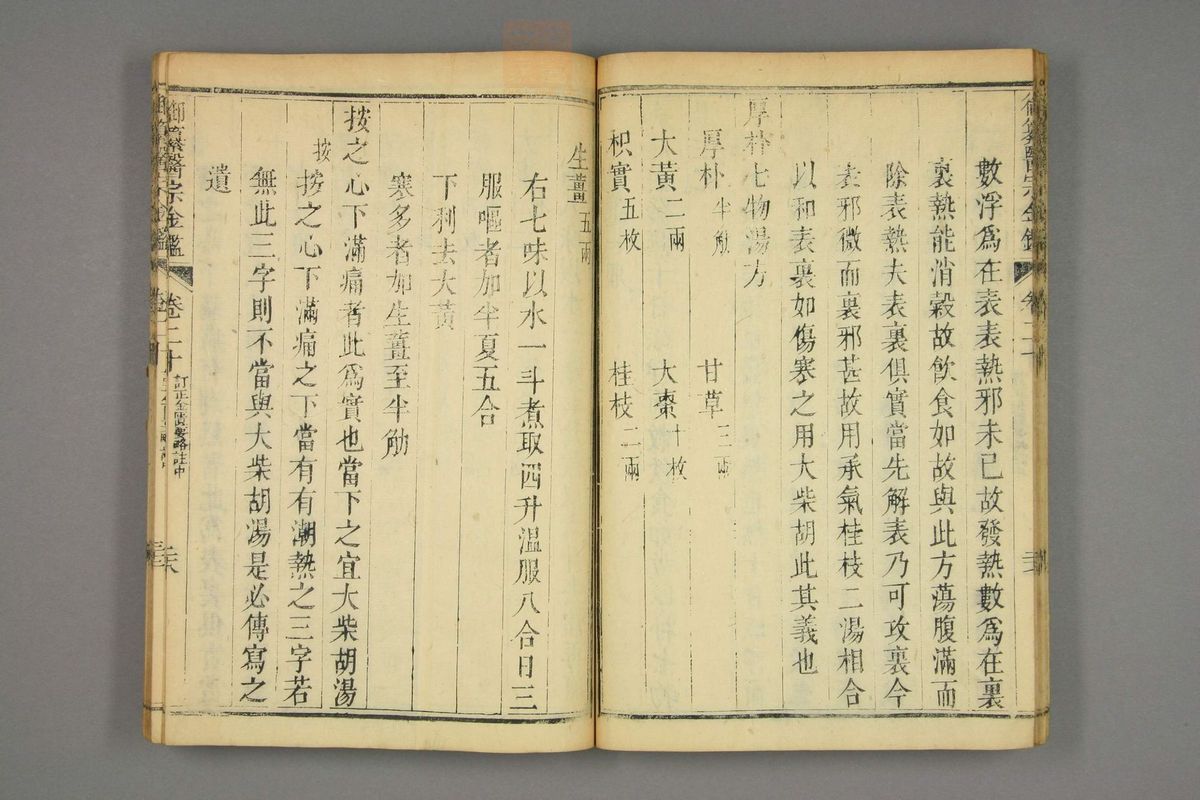 數浮爲在表表熱邪未已故發熱數爲在裏
裏熱能消穀故飮食如故與此方蕩腹滿而
除表熱夫表裏俱實當先解表乃可攻裏今
表邪微而裏邪甚故用承氣桂枝二湯相合
以和表裏如傷寒之用大柴胡此其義也
厚朴七物湯方
厚朴半觔 甘草三兩
大黃二兩 大棗十枚
枳實五枚 桂枝二兩
生薑五兩
右七味以水一斗煮取四升溫服八合日三
服嘔者加半夏五合
下利去大黃
寒多者加生薑至半觔
按之心下滿痛者此爲實也當下之宜大柴胡湯
按
按之心下滿痛之下當有有潮熱之三字若
無此三字則不當與大柴胡湯是必傳寫之
遺
御纂醫宗金鑑
卷二十
訂正金匱要略註中